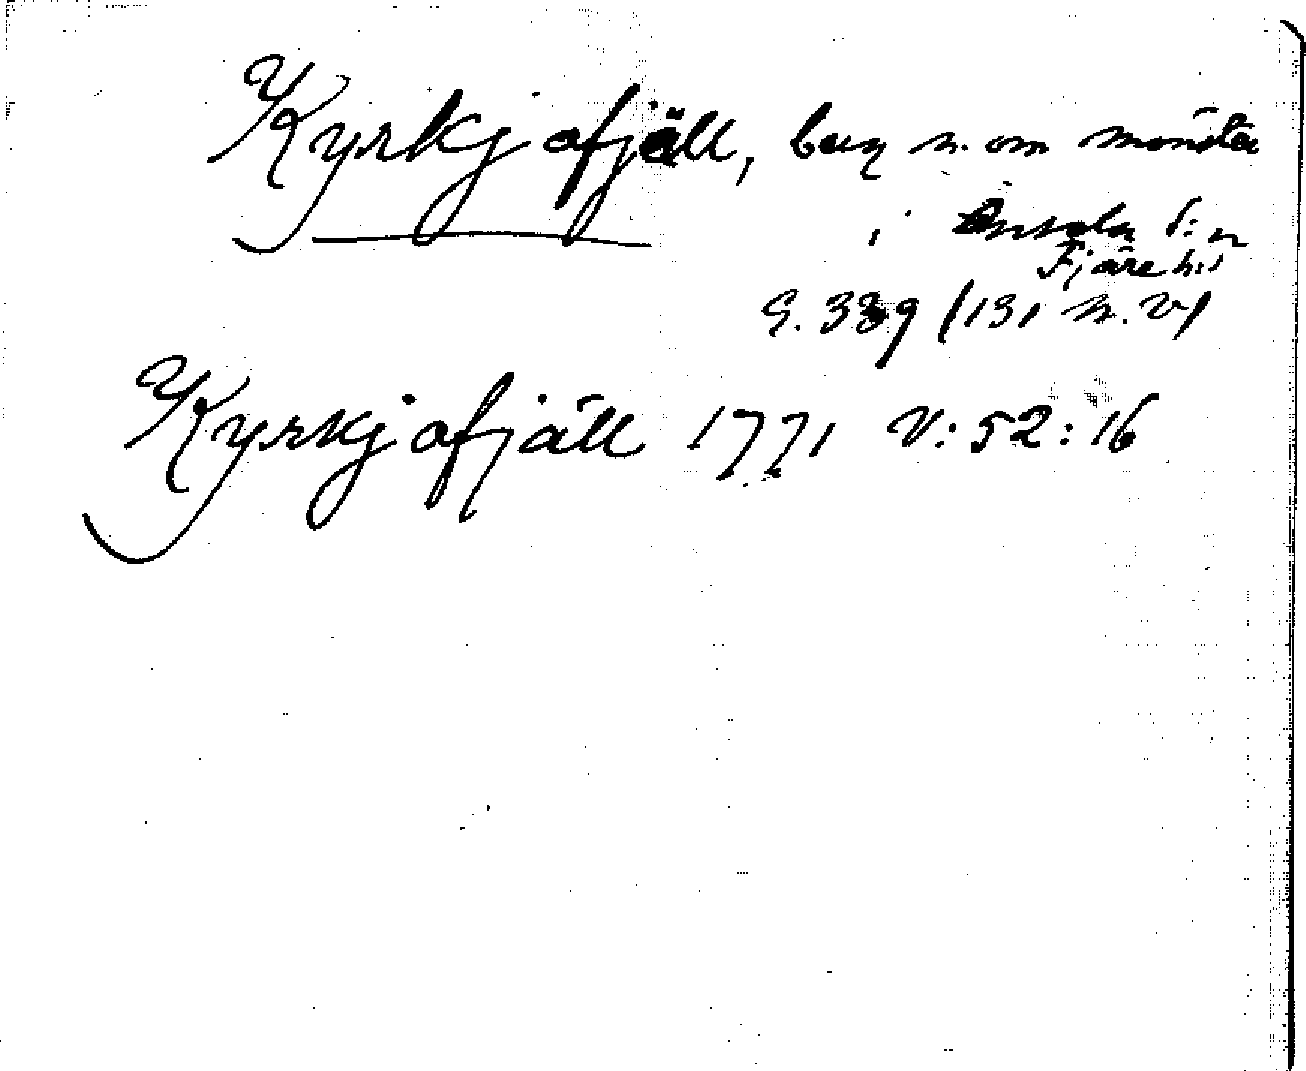 Kyrkjofjäll, berg n. om mönster
i Onsala s:n
Fjäre hd
G. 339 (131 n. v)
Kyrkjofjäll 1771 V:52:16